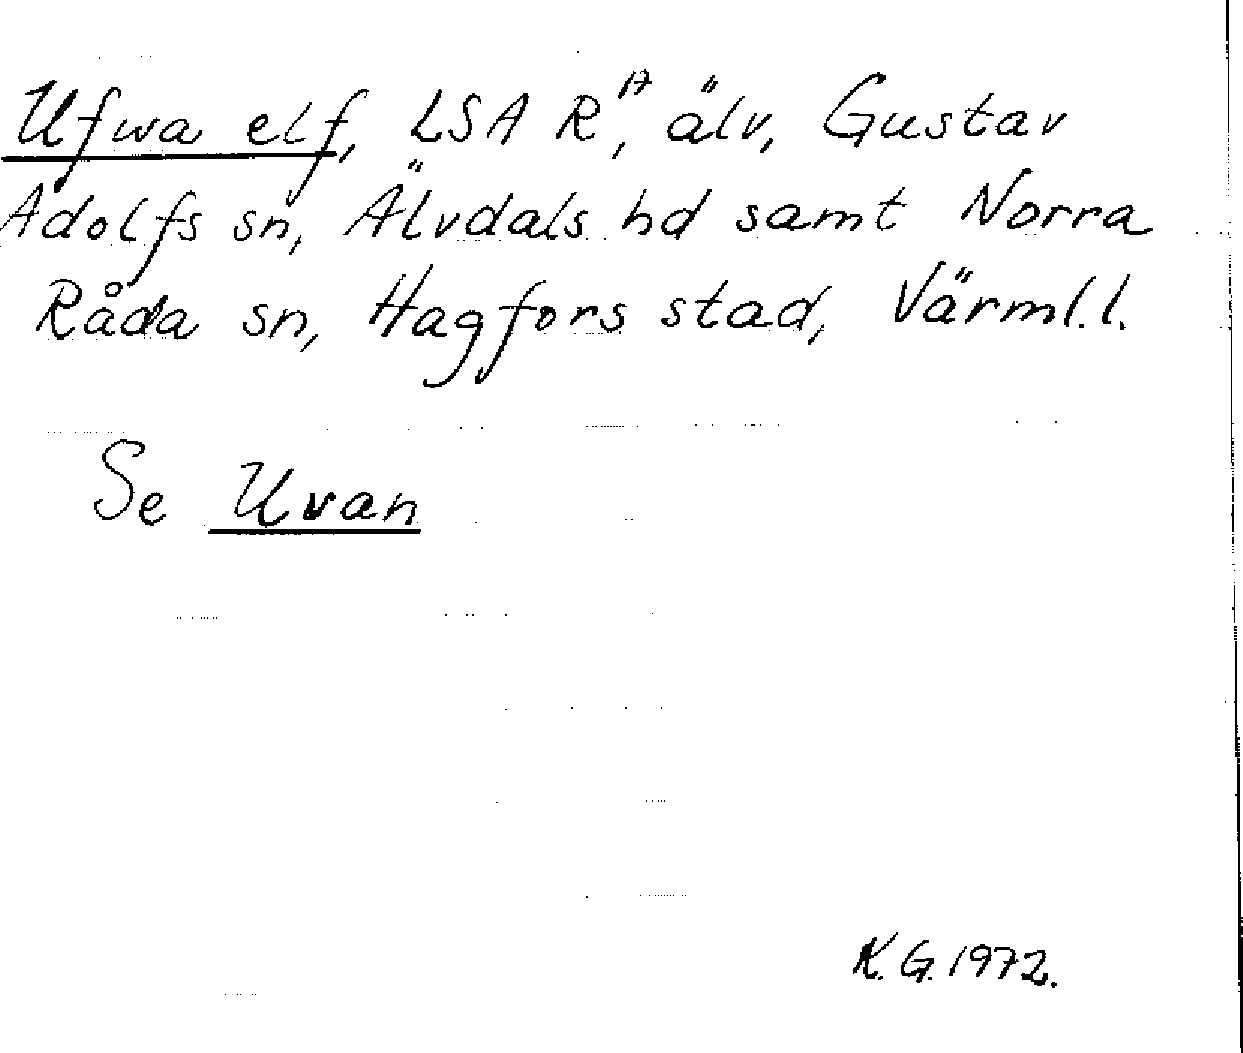 Ufwa elf, LSA R^A, älv, Gustav
Adolfs sn, Älvdals hd samt Norra
Råda sn, Hagfors stad, Värml.l.
Se Uvan
K.G. 1972.